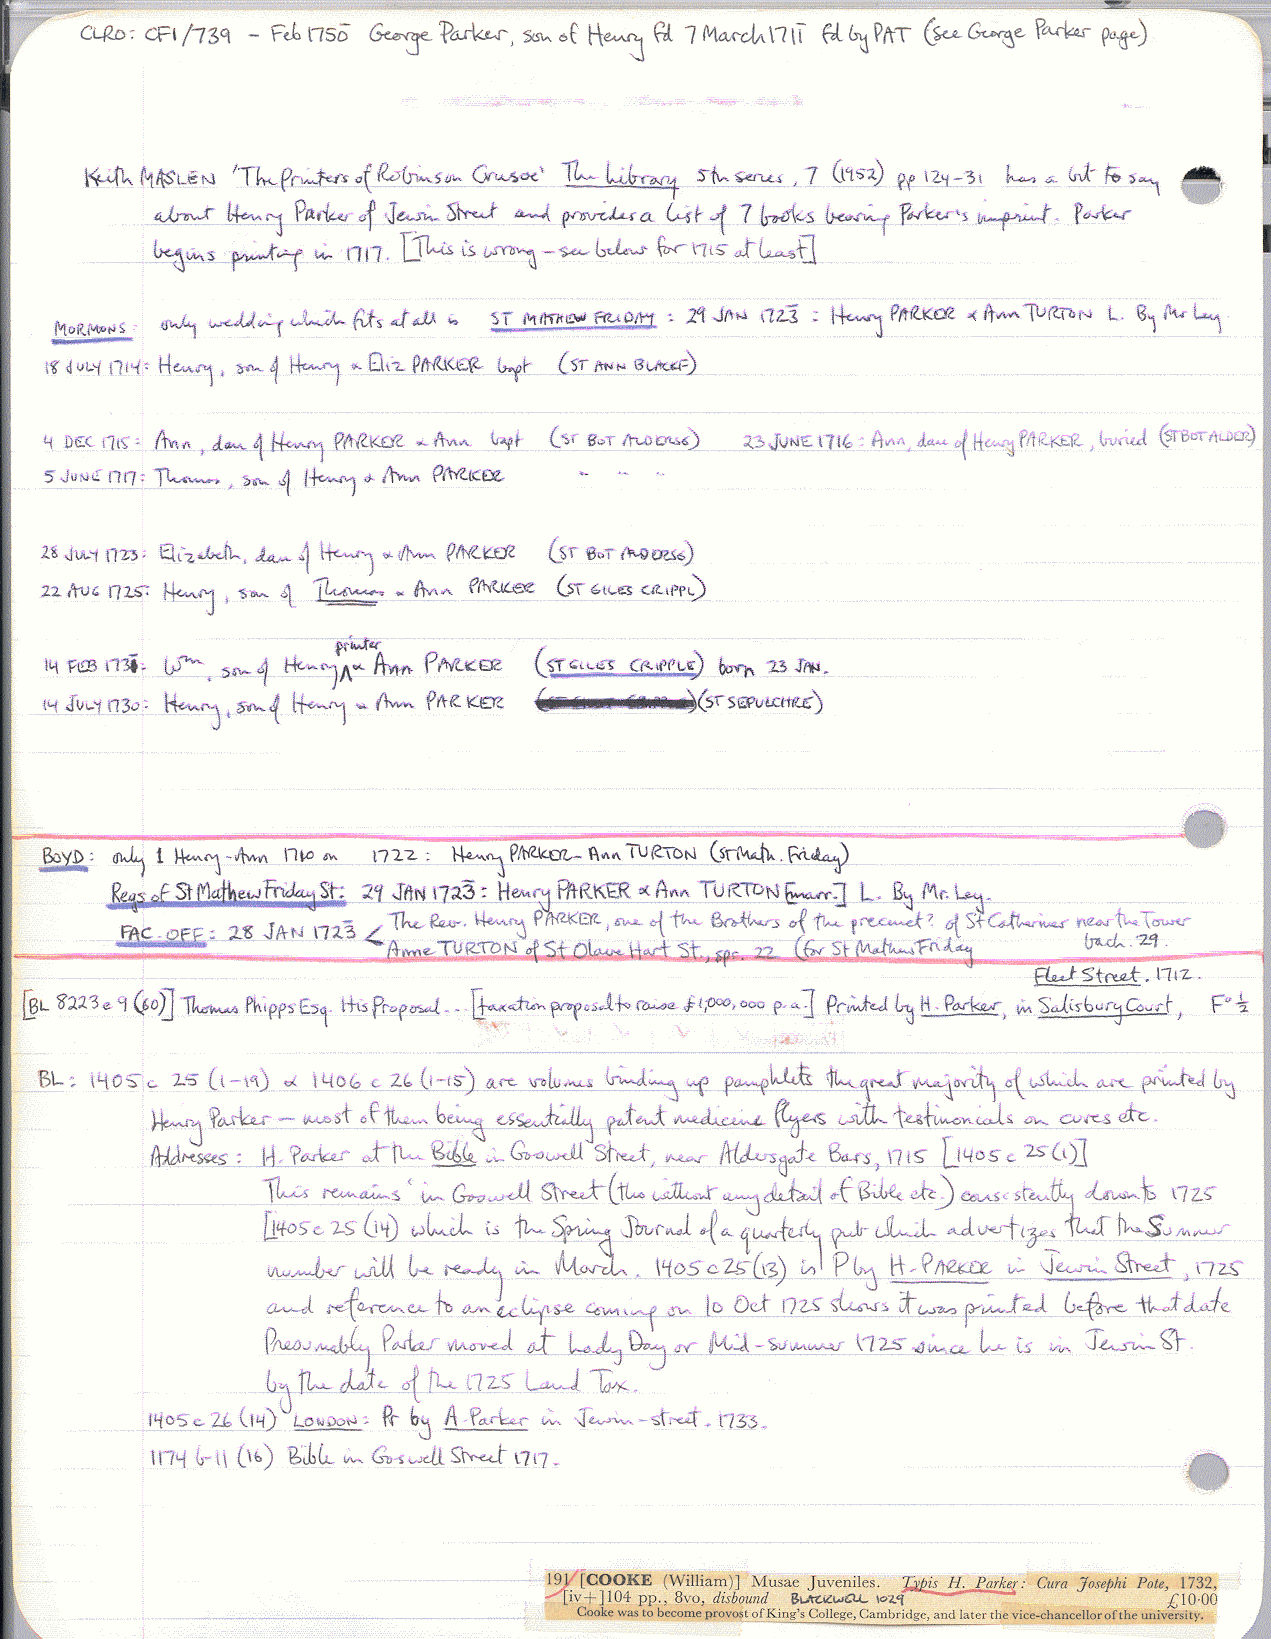 CLRO: CF1/739 - Feb 1750 George Parker, son of Henry fd 7 March 1711 fd by PAT (see George Parker page)
Keith MASLEN 'The Printers of Robinson Crusoe' The Library 5th series, 7 (1952) pp 124-31 has a bit to say
about Henry Parker of Jewin Street and provides a list of 7 books bearing Parker's imprint. Parker
begins printing in 1717. [This is wrong - see below for 1715 at least]
MORMONS: only wedding which fits at all is ST MATHEW FRIDAY: 29 JAN 1723: Henry PARKER & Ann TURTON L. By Mr Ley.
18 JULY 1714: Henry, son of Henry & Eliz PARKER bapt (ST ANN BLACKF)
4 DEC 1715: Ann, dau of Henry PARKER & Ann bapt (ST BOT ALDERSG) 23 JUNE 1716: Ann, dau of Henry PARKER, buried (ST BOT ALDER)
5 JUNE 1717: Thomas, son of Henry & Ann PARKER " " "
28 JULY 1723: Elizabeth, dau of Henry & Ann PARKER (ST BOT ALDERSG)
22 AUG 1725: Henry, son of Thomas & Ann PARKER (ST GILES CRIPPL)
14 FEB 173: Wm, son of Henry printer & Ann PARKER (ST GILES CRIPPLE) born 23 JAN.
14 JULY 1730: Henry, son of Henry & Ann PARKER (ST SEPULCHRE)
BOYD: only 1 Henry-Ann 1710 on 1722: Henry PARKER - Ann TURTON (St Math. Friday)
Regs of St Mathew Friday St: 29 JAN 1723: Henry PARKER & Ann TURTON [marr.] L. By Mr. Ley.
FAC. OFF: 28 JAN 1723 < The Rev. Henry PARKER, one of the Brothers of the precunct? of St Catherines near the Tower
bach. 29.
Anne TURTON of St Olave Hart St., spr. 22 (for St Mathew Friday
Fleet Street. 1712.
[BL 8223 e 9 (60)] Thomas Phipps Esq. His Proposal... [taxation proposal to raise £1,000,000 p.a.] Printed by H. Parker, in Salisbury Court, F° ½
BL: 1405 c 25 (1-19) & 1406 c 26 (1-15) are volumes binding up pamphlets the great majority of which are printed by
Henry Parker - most of them being essentially patent medicine flyers with testimonials on cures etc.
Addresses: H. Parker at the Bible in Goswell Street, near Aldersgate Bars, 1715 [1405 c 25 (1)]
This remains 'in Goswell Street (tho without any detail of Bible etc.) consistently down to 1725
[1405 c 25 (14) which is the Spring Journal of a quarterly pub which advertizes that the Summer
number will be ready in March. 1405 c 25 (13) is P by H. PARKER in Jewin Street, 1725
and reference to an eclipse coming on 10 Oct 1725 shows it was printed before that date
Presumably Parker moved at Lady Day or Mid-summer 1725 since he is in Jewin St.
by the date of the 1725 Land Tax.
1405 c 26 (14) LONDON: Pr by A Parker in Jewin-street. 1733.
1174 b 11 (16) Bible in Goswell Street 1717.
191 [COOKE (William)] Musae Juveniles. Typis H. Parker: Cura Josephi Pote, 1732,
[iv+]104 pp., 8vo, disbound BLACKWELL 1029 £10·00
Cooke was to become provost of King's College, Cambridge, and later the vice-chancellor of the university.